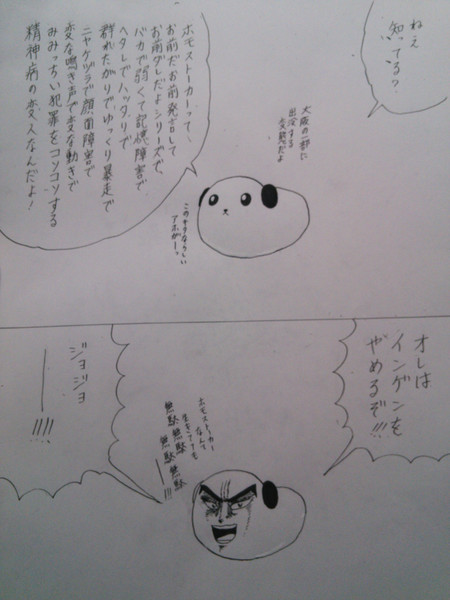 ねえ
知ってる？
大阪の一部に
出没する
変態だよ
ホモストーカーって、
お前だお前発言して
お前ダレだよシリーズで、
バカで弱くて記憶障害で
ヘタレでハッタリで
群れたがりでゆっくり暴走で
ニヤケヅラで顔面障害で
変な鳴き声で変な動きで
みみっちい犯罪をコソコソする
精神病の変人なんだよ！
アホがーッ
オレは
インゲンを
やめるぞ!!!
ジョジョ
ーー!!!!
ホモストーカー
なんて
生きてても
無駄無駄
無駄無駄
ーー!!!